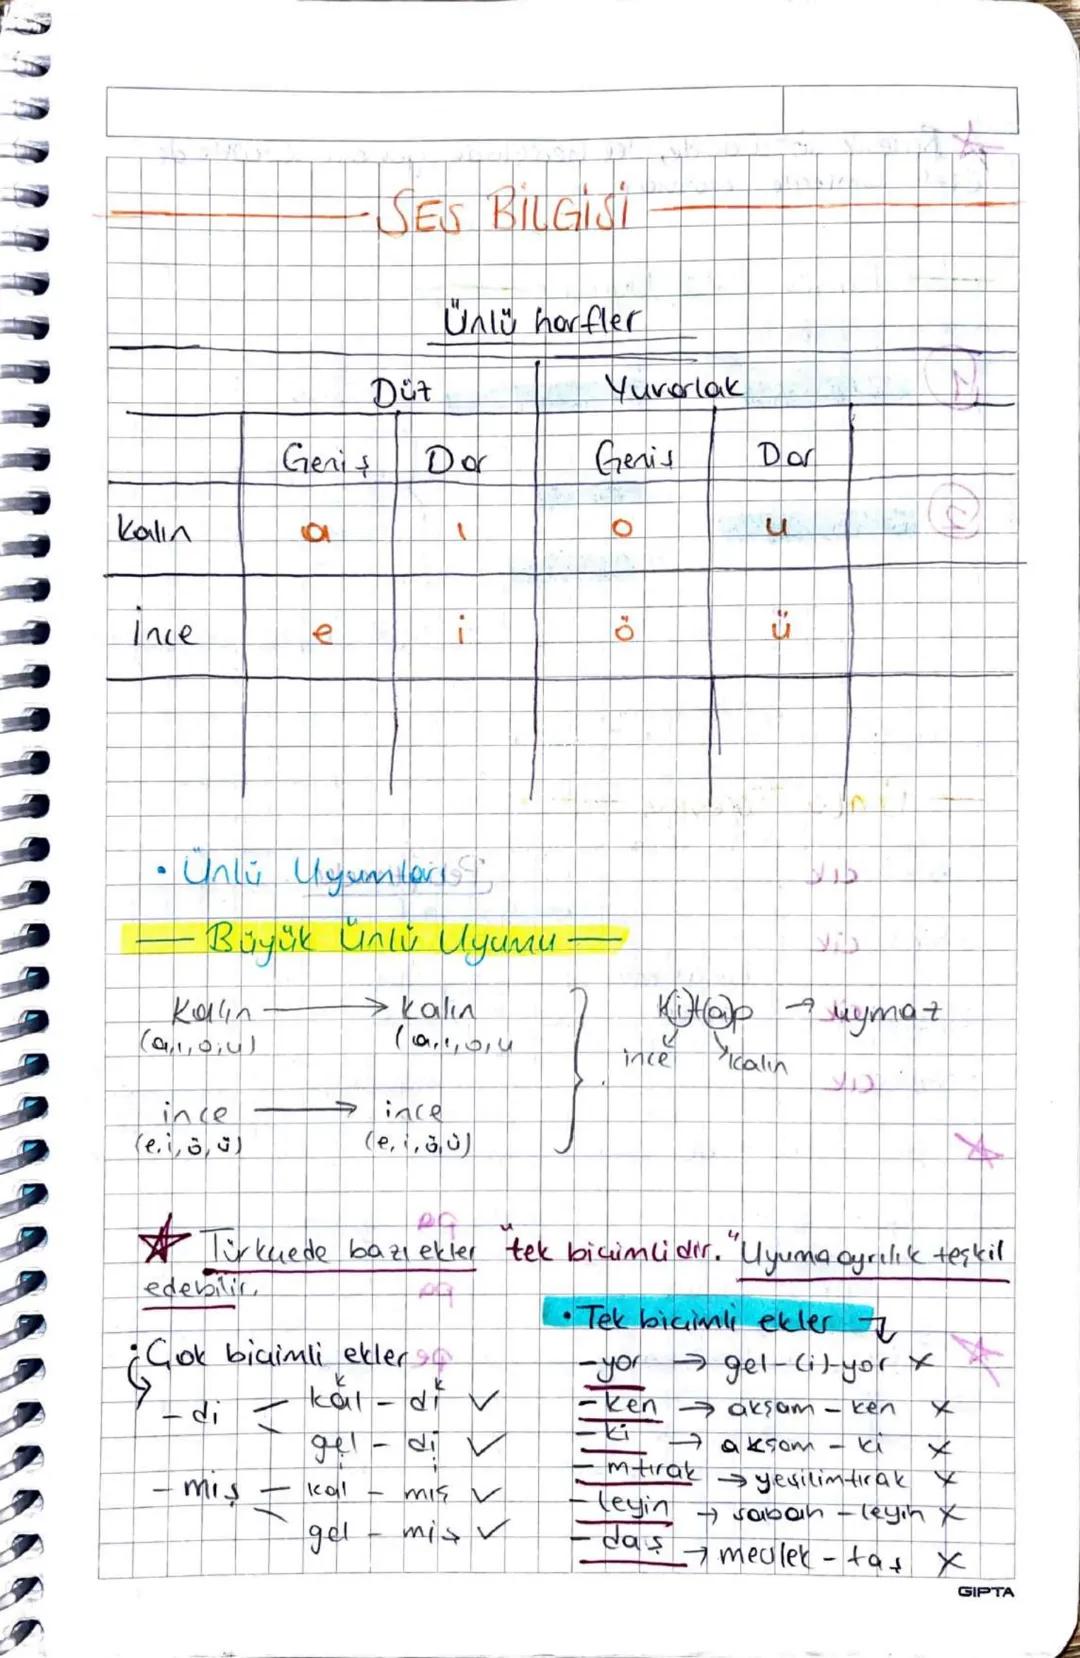 SES BİLGİSİ
Ünlü harfler
Düz Yuvarlak
Geniş Dar Geniş Dar
Kalın a ı o u
İnce e i ö ü
• Ünlü Uyumları
— Büyük Ünlü Uyumu —
Kalın → Kalın
(a,ı,o,u) (a,ı,o,u
ince → ince
(e,i,ö,ü) (e,i,ö,ü)
Kitap → uymaz
ince kalın
☆ Türkçede bazı ekler "tek biçimlidir." Uyuma aykırılık teşkil
edebilir.
• Çok biçimli ekler
-di kal - dı ✓
gel - di ✓
-miş kal - mış ✓
gel - miş ✓
• Tek biçimli ekler
-yor → gel-(i)-yor ×
-ken → akşam - ken ×
-ki → akşam - ki ×
-mtırak → yeşilimtırak ×
-leyin → sabah - leyin ×
-daş → meslek - taş ×
GIPTA